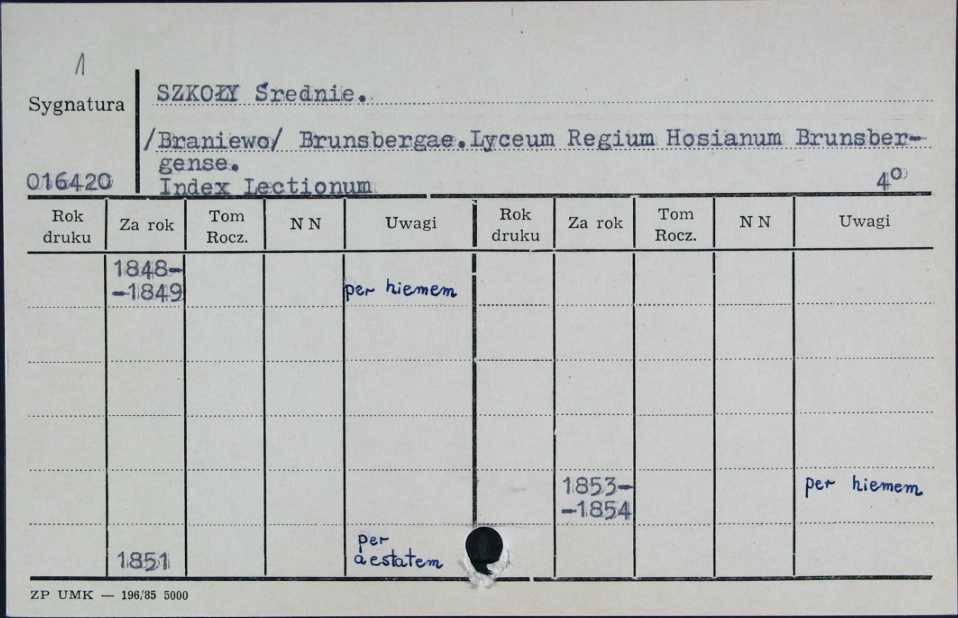 1
Sygnatura
SZKOŁY Średnie.
/Braniewo/ Brunsbergae.Lyceum Regium Hosianum Brunsber-
gense.
016420
Index Lectionum
4º
Rok druku
Za rok
Tom Rocz.
N N
Uwagi
Rok druku
Za rok
Tom Rocz.
N N
Uwagi
1848-
-1849
per hiemem
1853-
-1854
per hiemem
1851
per
aestatem
ZP UMK — 196/85 5000